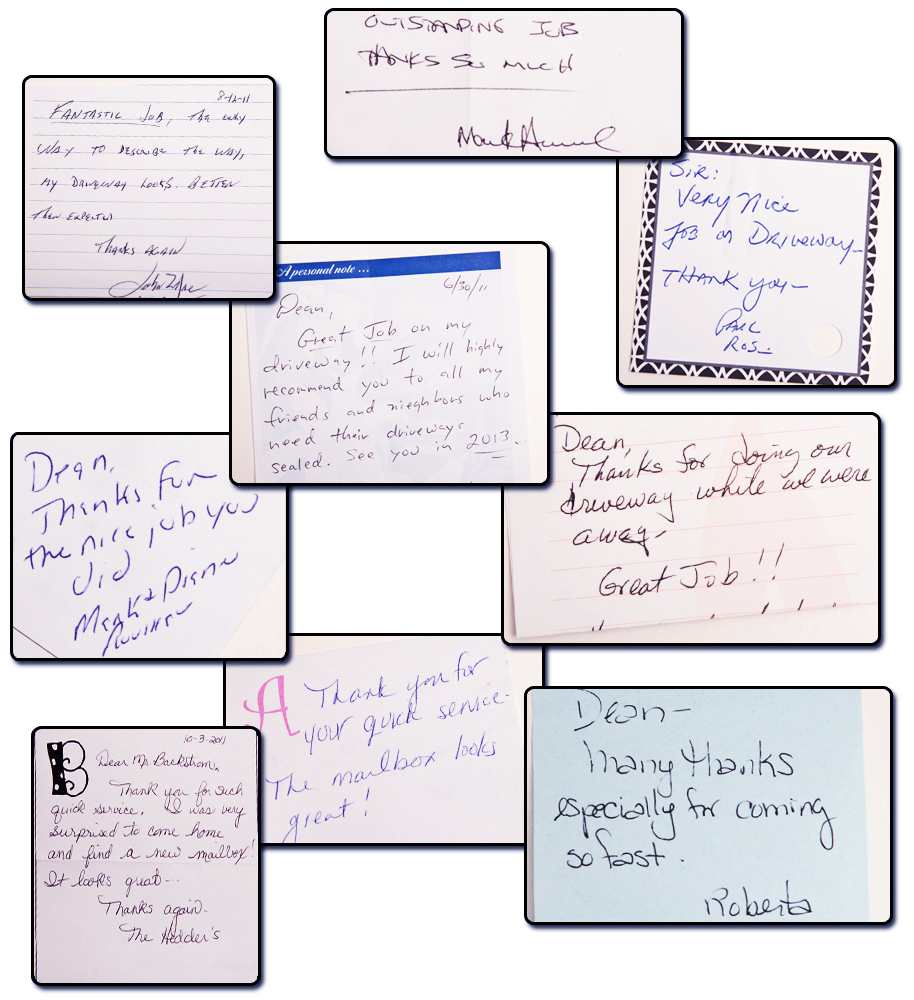 OUTSTANDING JOB
THANKS SO MUCH
8-12-11
FANTASTIC JOB, THE WAY
WAY TO DESCRIBE THE WAY,
MY DRIVEWAY LOOKS. BETTER
THEN EXPECTED
THANKS AGAIN
John
Sir:
Very Nice
Job on Driveway—
THANK you—
Paul
Ros
A personal note ...
6/30/11
Dean,
Great Job on my
driveway!! I will highly
recommend you to all my
friends and nieghbors who
need their driveways
sealed. See you in 2013.
Dean,
Thanks for
the nice job you
did
Mark & Diane
Dean,
Thanks for doing our
driveway while we were
away—
Great Job!!
A
Thank you for
your quick service—
The mailbox looks
great!
10-3-2011
B
Dear Mr. Backstrom,
Thank you for such
quick service. I was very
surprised to come home
and find a new mailbox!
It looks great---
Thanks again—
The Hedder's
Dean—
Many thanks
especially for coming
so fast.
Roberta